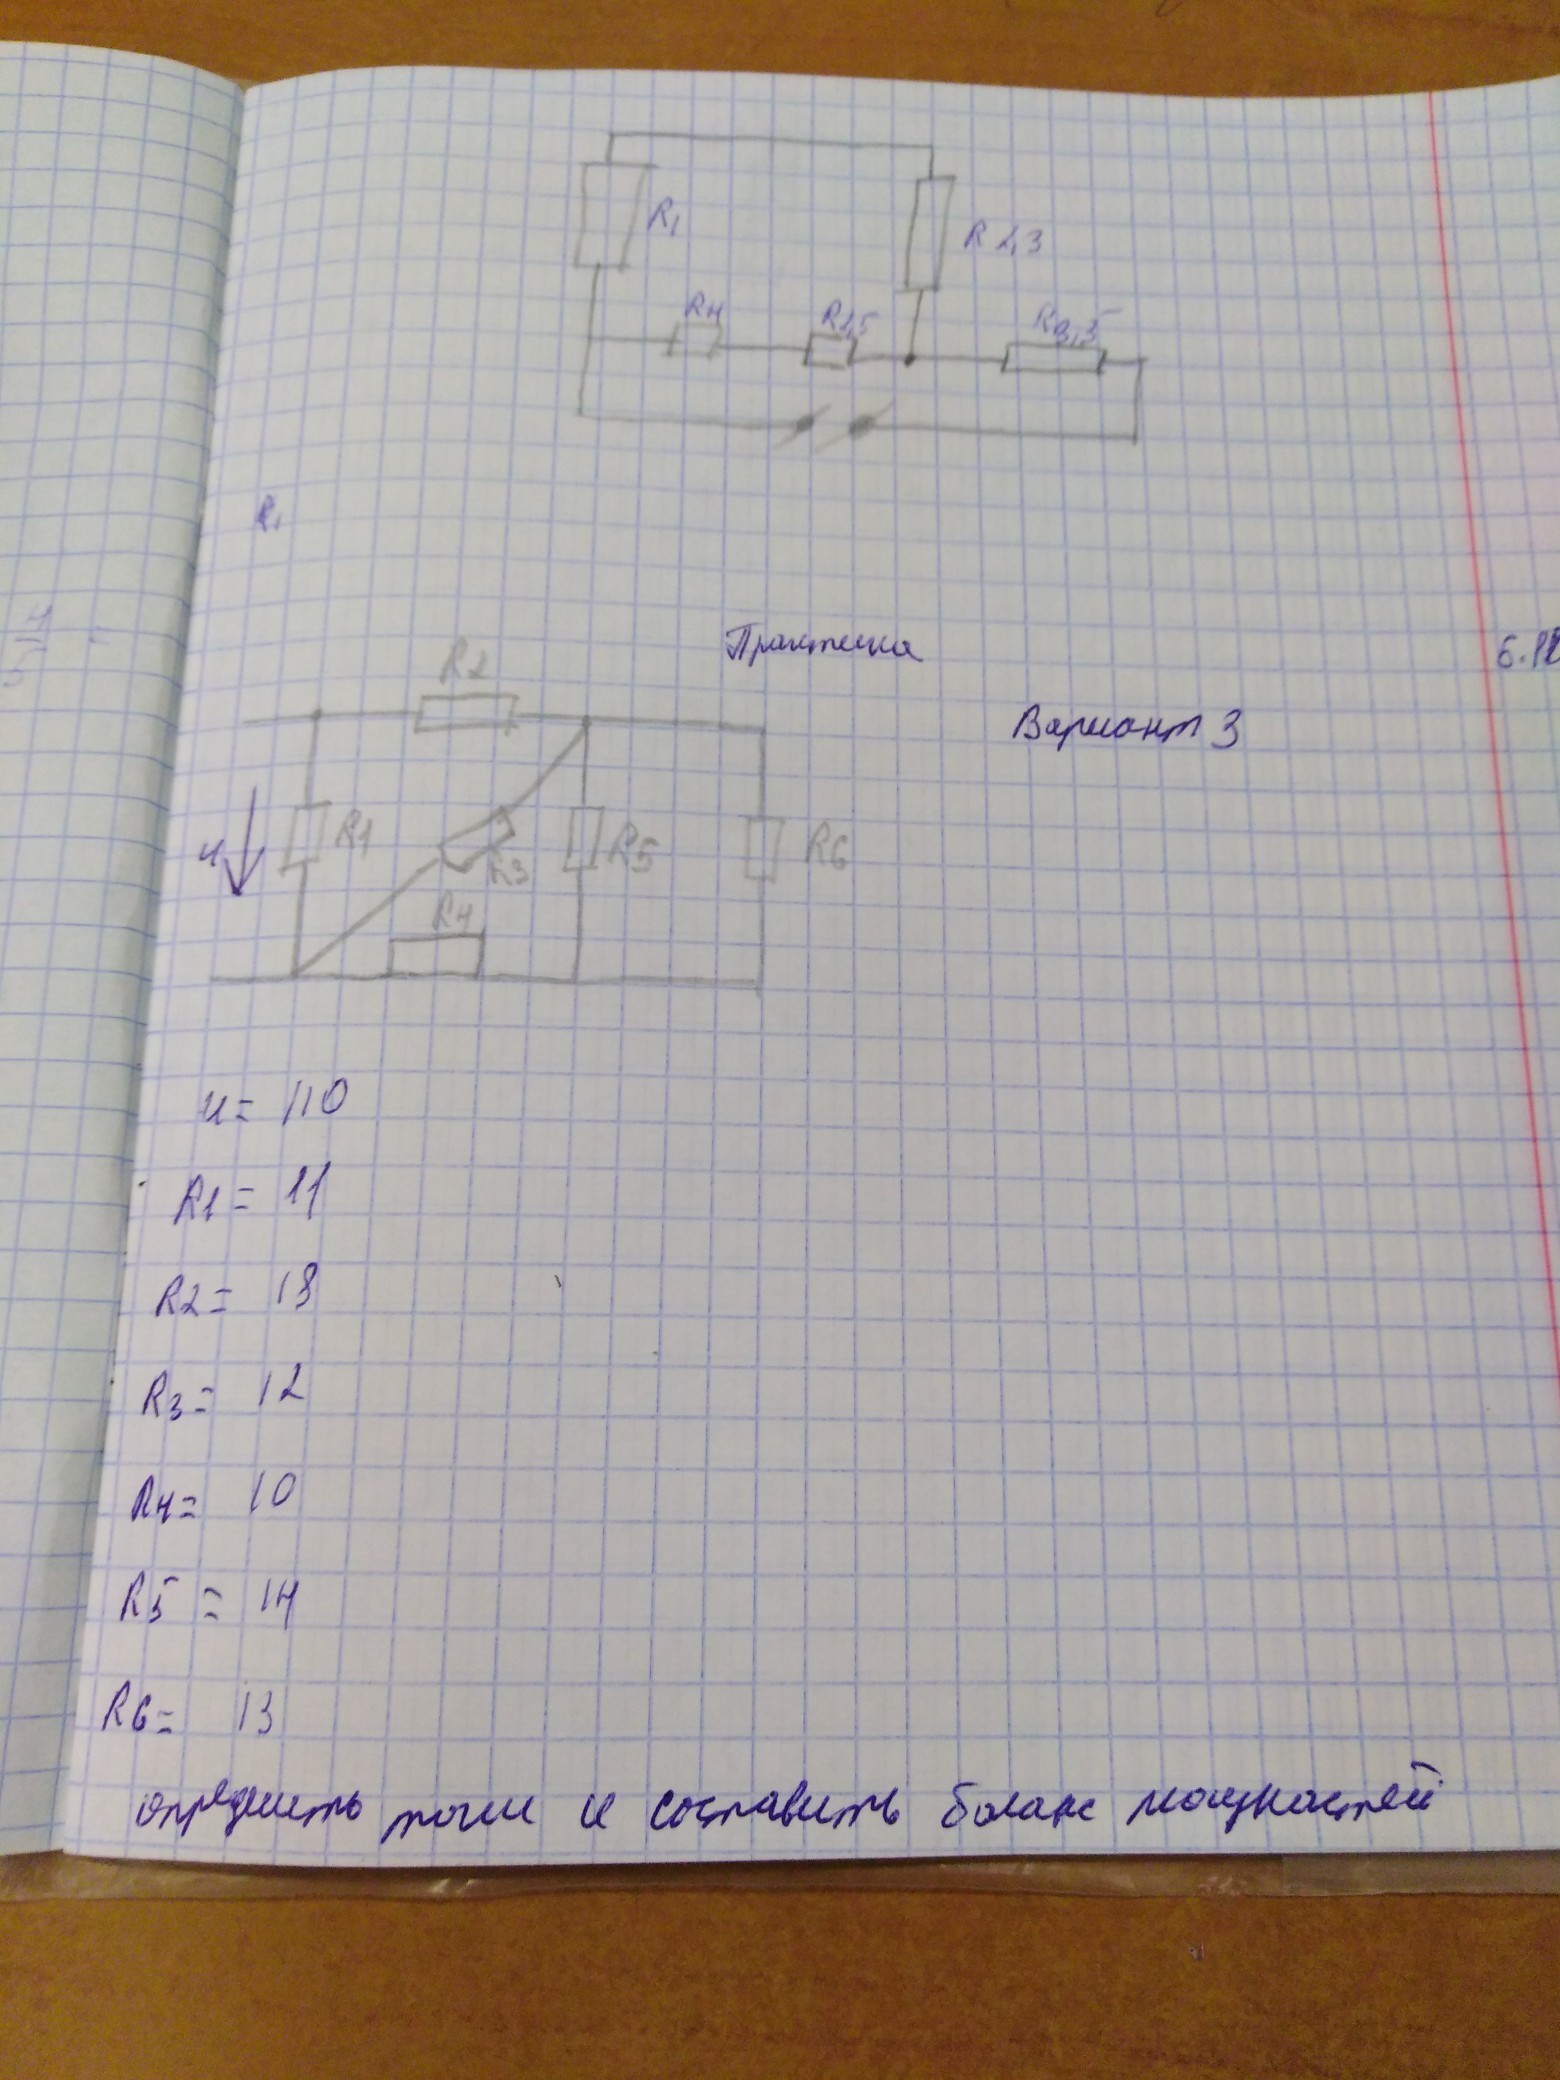 R1
R 2,3
R4
R2,5
R3,5
R1
Практика
6.12
Вариант 3
R2
u
R1
R3
R5
R6
R4
u= 110
R1= 11
R2= 18
R3= 12
R4= 10
R5 = 14
R6= 13
определить токи и составить баланс мощностей